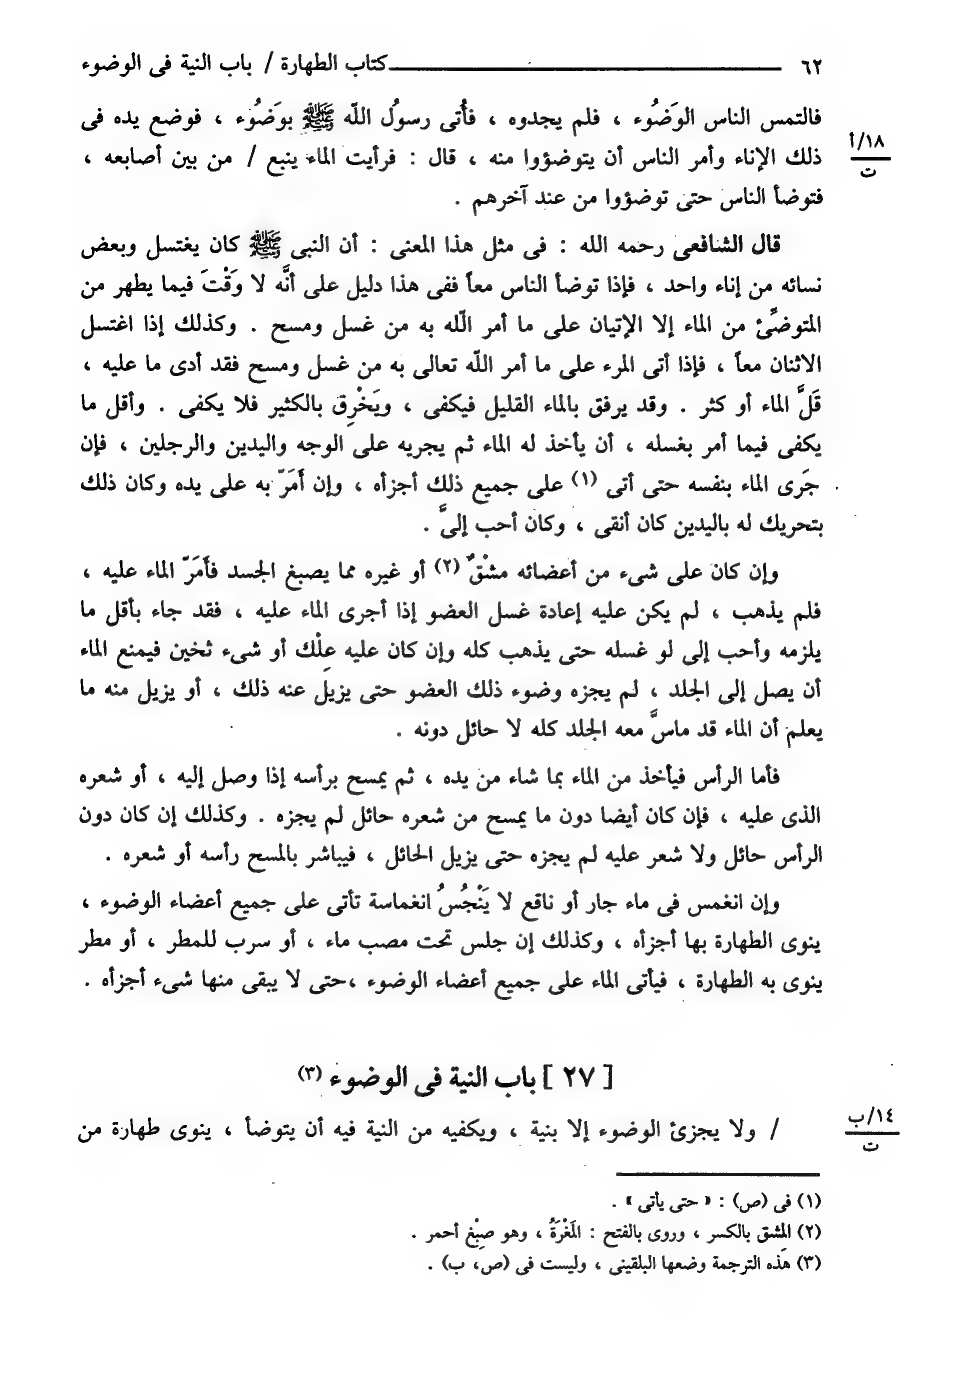 ٦٢ كتاب الطهارة / باب النية فى الوضوء
فالتمس الناس الوَضُوء ، فلم يجدوه ، فأُتى رسولُ اللّه ﷺ بوَضُوء ، فوضع يده فى
١٨/أ
ت
ذلك الإناء وأمر الناس أن يتوضؤوا منه ، قال : فرأيت الماء ينبع / من بين أصابعه ،
فتوضأ الناس حتى توضؤوا من عند آخرهم .
قال الشافعى رحمه الله : فى مثل هذا المعنى : أن النبى ﷺ كان يغتسل وبعض
نسائه من إناء واحد ، فإذا توضأ الناس معاً ففى هذا دليل على أنَّه لا وَقْتَ فيما يطهر من
المتوضِّئ من الماء إلا الإتيان على ما أمر اللّه به من غسل ومسح . وكذلك إذا اغتسل
الاثنان معاً ، فإذا أتى المرء على ما أمر اللّه تعالى به من غسل ومسح فقد أدى ما عليه ،
قَلَّ الماء أو كثر . وقد يرفق بالماء القليل فيكفى ، ويَخْرِق بالكثير فلا يكفى . وأقل ما
يكفى فيما أمر بغسله ، أن يأخذ له الماء ثم يجريه على الوجه واليدين والرجلين ، فإن
جَرى الماء بنفسه حتى أتى (١) على جميع ذلك أجزأه ، وإن أَمَرّ به على يده وكان ذلك
بتحريك له باليدين كان أنقى ، وكان أحب إلىَّ .
وإن كان على شىء من أعضائه مشْقٌ (٢) أو غيره مما يصبغ الجسد فأَمَرّ الماء عليه ،
فلم يذهب ، لم يكن عليه إعادة غسل العضو إذا أجرى الماء عليه ، فقد جاء بأقل ما
يلزمه وأحب إلى لو غسله حتى يذهب كله وإن كان عليه عِلْك أو شىء ثخين فيمنع الماء
أن يصل إلى الجلد ، لم يجزه وضوء ذلك العضو حتى يزيل عنه ذلك ، أو يزيل منه ما
يعلم أن الماء قد ماسَّ معه الجلد كله لا حائل دونه .
فأما الرأس فيأخذ من الماء بما شاء من يده ، ثم يمسح برأسه إذا وصل إليه ، أو شعره
الذى عليه ، فإن كان أيضا دون ما يمسح من شعره حائل لم يجزه . وكذلك إن كان دون
الرأس حائل ولا شعر عليه لم يجزه حتى يزيل الحائل ، فيباشر بالمسح رأسه أو شعره .
وإن انغمس فى ماء جار أو ناقع لا يَنْجُسُ انغماسة تأتى على جميع أعضاء الوضوء ،
ينوى الطهارة بها أجزأه ، وكذلك إن جلس تحت مصب ماء ، أو سرب للمطر ، أو مطر
ينوى به الطهارة ، فيأتى الماء على جميع أعضاء الوضوء ،حتى لا يبقى منها شىء أجزأه .
[ ٢٧ ] باب النية فى الوضوء (٣)
١٤/ب
ت
/ ولا يجزئ الوضوء إلا بنية ، ويكفيه من النية فيه أن يتوضأ ، ينوى طهارة من
(١) فى (ص) : « حتى يأتى » .
(٢) المشق بالكسر ، وروى بالفتح : المَغْرَةُ ، وهو صِبْغ أحمر .
(٣) هَذه الترجمة وضعها البلقينى ، وليست فى (ص، ب) .